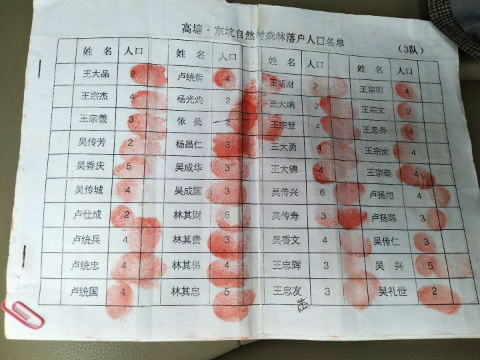 高塘·东坑自然村森林落户人口名单
(3队)
姓 名 人口 姓 名 人口 姓 名 人口 姓 名 人口
王大品 2 卢统哲 4 王廷财 2 王宗明 4
王宗杰 4 杨光灼 2 王大响 2 王宗文 2
王宗義 3 依 美 王宗登 4 王忠务 4
吴传芳 2 杨昌仁 3 王大勇 4 王宗 4
吴香庆 5 吴成华 3 王大锦 4 王宗 4
吴传城 4 吴成国 3 吴传兴 6 卢扬 4
卢仕成 2 林其财 6 吴传寿 3 卢扬聪 3
卢统兵 4 林其贵 3 吴香文 4 吴传仁 3
卢统忠 4 林其 4 王忠辉 3 吴 兴 5
卢统国 4 林其忠 5 王忠友 3 吴礼世 2